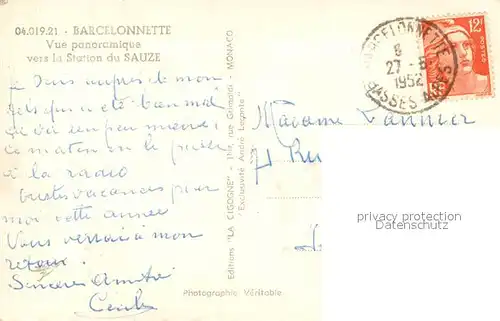 04.019.21 - BARCELONNETTE
Vue panoramique
vers la Station du SAUZE
je suis auprès de mon
fils qui a été bien mal
va un peu mieux
ce matin on le passe
à la radio
tristes vacances pour
moi cette année
Vous verrai à mon
retour.
Sincères Amitiés
Cécile
Photographie Véritable
Editions "LA CIGOGNE" - 1bis, rue Grimaldi - MONACO
"Exclusivité André Lagante"
BARCELONNETTE
8
27 - 8
1952
BASSES ALPES
12F
POSTES
Madame
privacy protection
Datenschutz